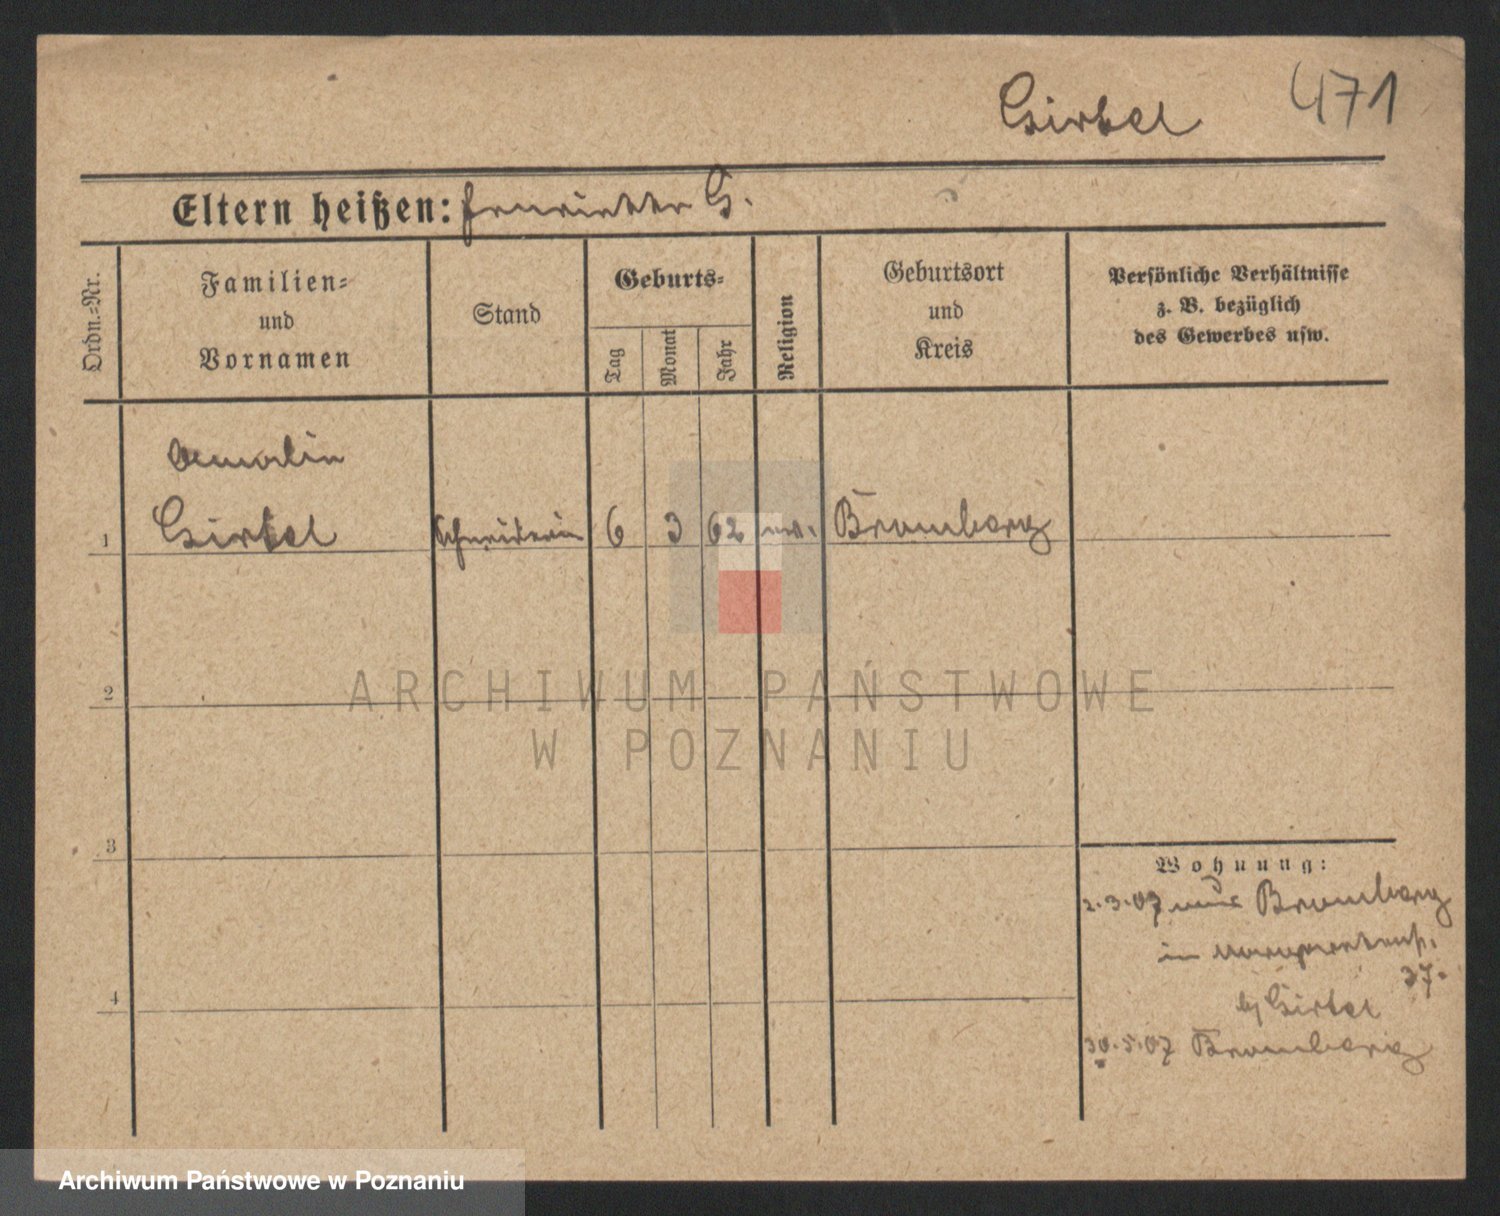 Girtel 471
Eltern heißen: Henriette G.
Ordn.=Nr.
Familien=
und
Vornamen
Stand
Geburts=
Tag
Monat
Jahr
Religion
Geburtsort
und
Kreis
Persönliche Verhältnisse
z. B. bezüglich
des Gewerbes usw.
Amalie
1 Girtel Schneiderin 6 3 62 ev. Bromberg
2
3
4
Wohnung:
2.3.07 aus Bromberg
in
37.
bei Girtel
30.5.07 Bromberg
ARCHIWUM PAŃSTWOWE
W POZNANIU
Archiwum Państwowe w Poznaniu